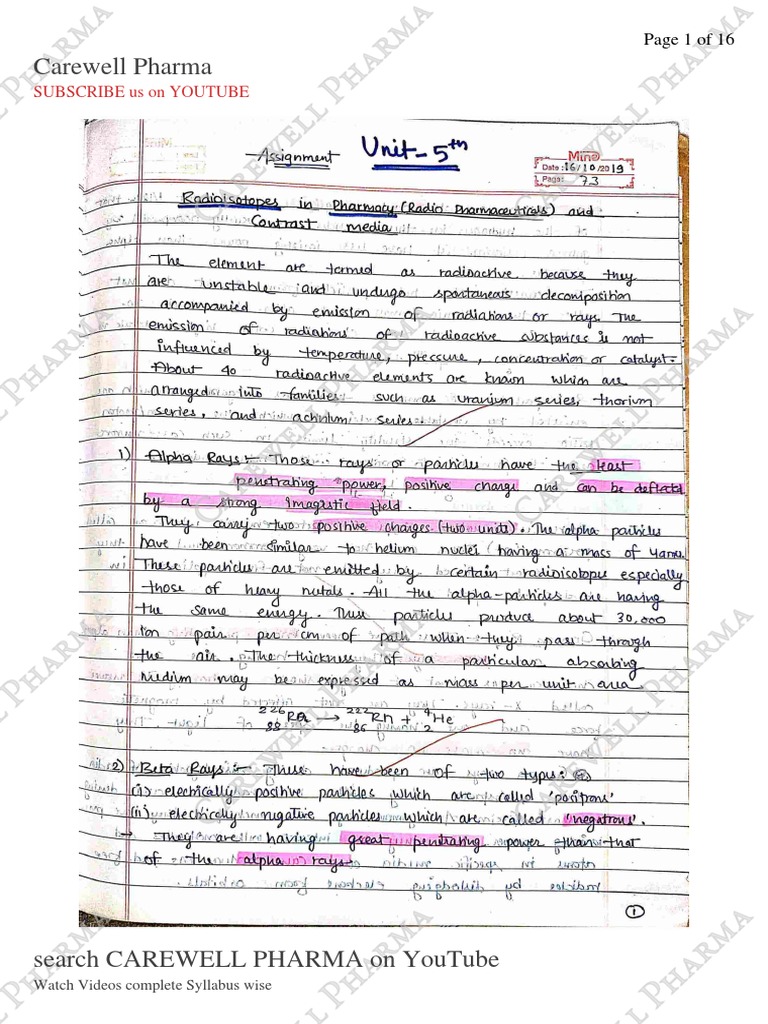 Page 1 of 16
Carewell Pharma
SUBSCRIBE us on YOUTUBE
Assignment Unit-5th
Mino
Date: 16/10/2019
Page: 73
Radioisotopes in Pharmacy (Radio Pharmaceuticals) and
Contrast media
The element are termed as radioactive because they
are unstable and undergo spontaneous decomposition
accompanied by emission of radiations or rays. The
emission of radiations of radioactive substances is not
influenced by temperature, pressure, concentration or catalyst.
About 40 radioactive elements are known which are
arranged into families such as uranium series, thorium
series, and actinium series.
1) Alpha Rays:- Those rays or particles have the least
penetrating power, positive charge and can be deflected
by a strong magnetic field.
They carry two positive charges (two units). The alpha particles
have been similar to helium nuclei (having a mass of 4amu.
These particles are emitted by certain radioisotopes especially
those of heavy metals. All the alpha-particles are having
the same energy. These particles produce about 30,000
ion pair per cm of path when they pass through
the air. The thickness of a particular absorbing
medium may be expressed as mass per unit area
²²⁶₈₈Ra → ²²²₈₆Rn + ⁴₂He
2) Beta Rays:- These have been of two types:
(i) electrically positive particles which are called 'positrons'
(ii) electrically negative particles which are called 'negatrons'.
→ They are having great penetrating power than that
of the alpha rays
1
search CAREWELL PHARMA on YouTube
Watch Videos complete Syllabus wise
CAREWELL PHARMA